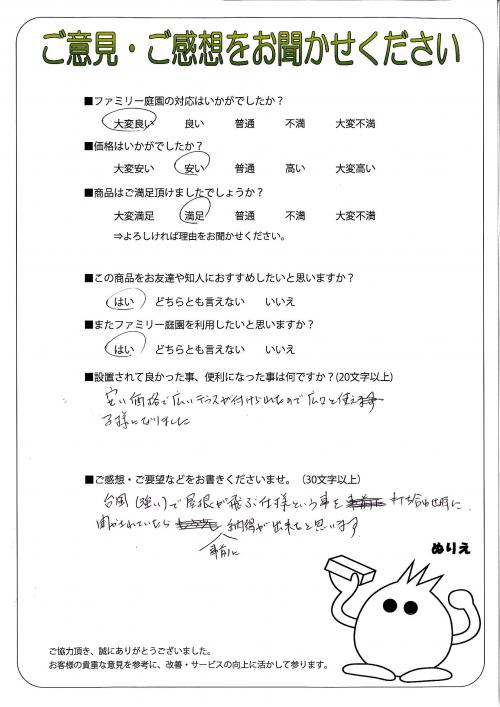 ご意見・ご感想をお聞かせください
■ファミリー庭園の対応はいかがでしたか？
大変良い 良い 普通 不満 大変不満
■価格はいかがでしたか？
大変安い 安い 普通 高い 大変高い
■商品はご満足頂けましたでしょうか？
大変満足 満足 普通 不満 大変不満
⇒よろしければ理由をお聞かせください。
■この商品をお友達や知人におすすめしたいと思いますか？
はい どちらとも言えない いいえ
■またファミリー庭園を利用したいと思いますか？
はい どちらとも言えない いいえ
■設置されて良かった事、便利になった事は何ですか？(20文字以上)
安い価格で広いテラスが付けられたので広々と使え
る様になりました
■ご感想・ご要望などをお書きくださいませ。（30文字以上）
台風(強い)で屋根が飛ぶ仕様という事を 打ち合わせ時に
聞かされていたら 事前に 納得が出来たと思います
ぬりえ
ご協力頂き、誠にありがとうございました。
お客様の貴重な意見を参考に、改善・サービスの向上に活かして参ります。